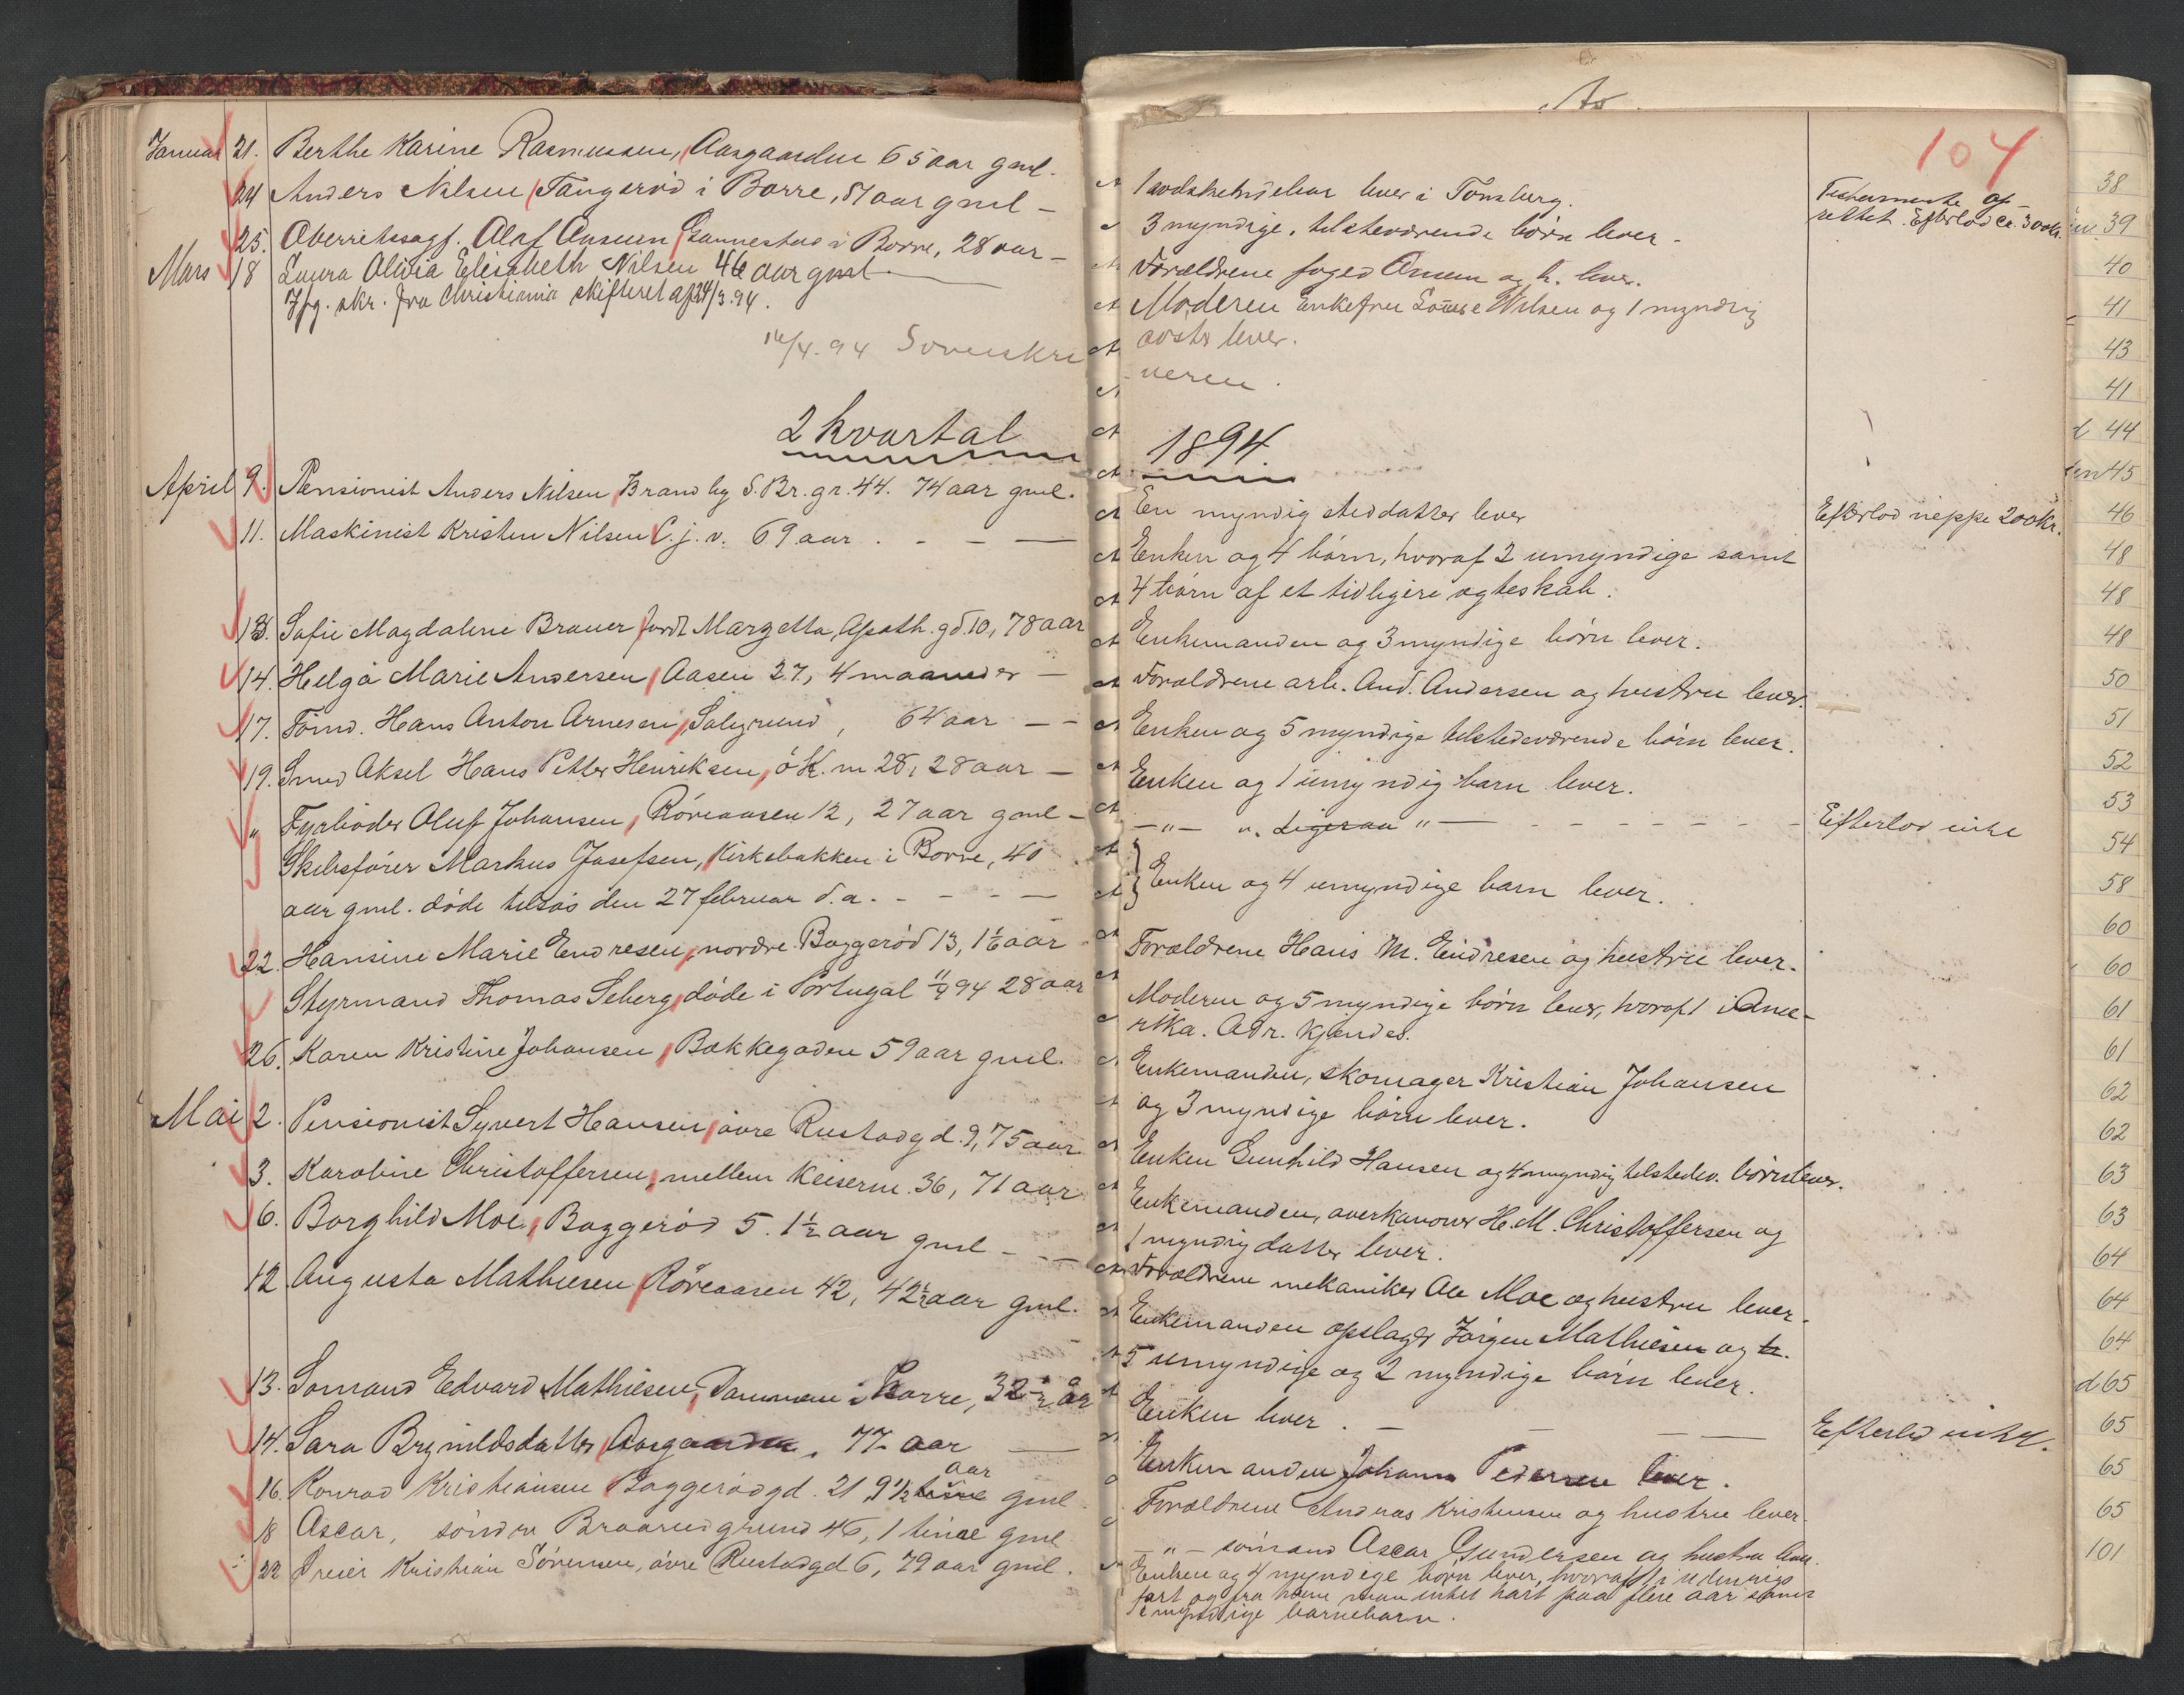 Januar 21. Berthe Karine Rasmussen, Aasgaarden 65 aar gml.
24 Anders Nilsen, Tangerød i Borre, 81 aar gml –
25. Overretssagf. Olaf Ansen, Gannestad i Borre, 28 aar –
Mars 18 Laura Olivia Elisabeth Nilsen 46 aar gml
Ifg. skr. fra Christiania skifteret af 24/3.94.
16/4.94 Sorenskri
2 kvartal
April 9. Pensionist Anders Nilsen, Brand by S. Br. gr. 44. 74 aar gml.
11. Maskinist Kristen Nilsen C. j. v. 69 aar
13. Sofie Magdalene Brauer født Margetta, Apoth. gd. 10, 78 aar
14. Helga Marie Andersen, Aasen 27, 4 maaneder –
17. Tømd. Hans Anton Arnesen, Solgrund, 64 aar – –
19. Smed Aksel Hans Petter Henriksen, ø. K. m 28, 28 aar –
" Fyrbøder Oluf Johansen, Røreaasen 12, 27 aar gml –
Skibsfører Markus Josefsen, Kirkebakken i Borre, 40
aar gml. døde tilsøs den 27 februar d. a. – – –
22. Hansine Marie Endresen, nordre Baggerød 13, 1½ aar
Styrmand Thomas Seberg, døde i Portugal 11/4 94 28 aar
26. Karen Kristine Johansen, Bakkegaden 59 aar gml.
Mai 2. Pensionist Syvert Hansen, øvre Rustadgd. 9, 75 aar
3. Karoline Christoffersen, mellem Keiserm. 36, 71 aar
6. Borghild Moe, Baggerød 5. 1½ aar gml – – –
12 Augusta Mathiesen, Røreaasen 42, 42½ aar gml.
13. Sømand Edvard Mathiesen, Dammen i Borre, 32½ år
14. Sara Brynildsdatter, Aasgaarden, 77 aar
aar
16. Konrad Kristiansen Baggerødgd. 21, 9½ time gml
18 Oscar, søndre Braarudgrund 46, 1 time gml
22 Dreier Kristian Sørensen, øvre Rustadgd 6, 79 aar gml.
104
lever i Tønsberg.
3 myndige, tilstedeværende børn lever.
Forældrene foged Ansen og h. lever.
Moderen Enkefru Lovise Nilsen og 1 myndig
søster lever.
veren.
1894
En myndig steddatter lever
Enken og 4 børn, hvoraf 2 umyndige samt
4 børn af et tidligere ægteskab.
Enkemanden og 3 myndige børn lever.
Forældrene arb. And. Andersen og hustru lever.
Enken og 5 myndige tilstedeværende børn lever.
Enken og 1 umyndig barn lever.
– " – " Ligesaa " –
Enken og 4 umyndige barn lever.
Forældrene Hans M. Endresen og hustru lever.
Moderen og 5 myndige børn lever, hvoraf 1 i Ame-
rika. Adr. kjendes.
Enkemanden, skomager Kristian Johansen
og 3 myndige børn lever.
Enken Gunhild Hansen og 4 myndig tilstedev. børn lever.
Enkemanden, overkanoner H. M. Christoffersen og
1 myndig datter lever.
Forældrene mekaniker Ole Moe og hustru lever.
Enkemanden opslager Jørgen Mathiesen og
5 umyndige og 2 myndige børn lever.
Enken lever.
Enkemanden Johann Pedersen lever.
Forældrene Andreas Kristensen og hustru lever.
– " – sømand Oscar Gundersen og hustru
Enken og 4 myndige børn lever, hvoraf 1 i udenrigs
fart og fra hvem man intet hørt paa flere aar samt
myndige barnebarn.
Testamente op-
rettet. Efterlod ca. 300 kr.
Efterlod neppe 200 kr.
Efterlod intet
Efterlod intet.
38
39
40
41
43
41
44
45
46
48
48
48
50
51
52
53
54
58
60
60
61
61
62
62
63
63
64
64
64
65
65
65
65
101